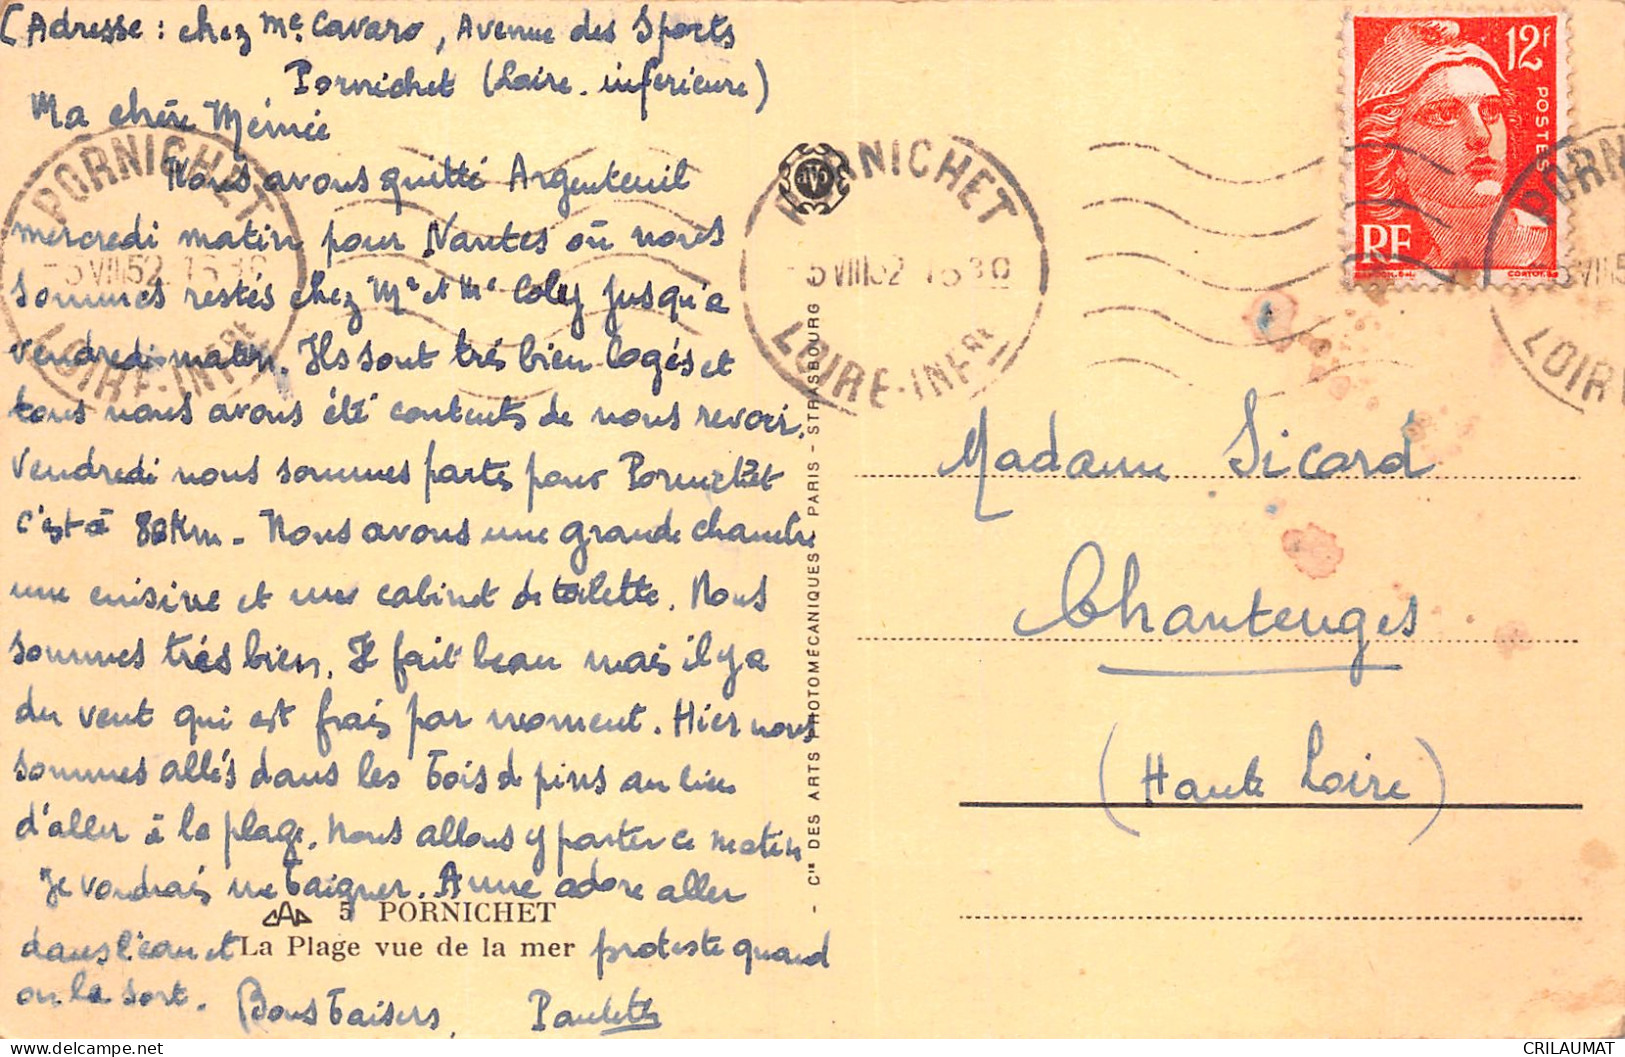 (Adresse : chez Me. Cavaro, Avenue des Sports
Pornichet (Loire. inférieure)
Ma chère Mémée
Nous avons quitté Argenteuil
mercredi matin pour Nantes où nous
sommes restés chez Mr et Me Coley jusqu'a
vendredi matin. Ils sont très bien logés et
tous nous avons été contents de nous revoir.
Vendredi nous sommes partis pour Pornichet
c'est à 80 Km - Nous avons une grande chambre
une cuisine et une cabinet de toilette. Nous
sommes très bien. Il fait beau mais il y a
du vent qui est frais par moment. Hier nous
sommes allés dans les bois de pins au lieu
d'aller à la plage. Nous allons y partir ce matin
Je voudrais me baigner. Anne adore aller
5 PORNICHET
dans l'eau et La Plage vue de la mer proteste quand
on la sort. Bons baisers. Paulette
PORNICHET
-5 VIII 52 1630
LOIRE-INFRE
PORNICHET
-5 VIII 52 1630
LOIRE-INFRE
- Cie DES ARTS PHOTOMÉCANIQUES PARIS - STRASBOURG
12F
POSTES
RF
PORN
VIII 5
LOIR
Madame Sicard
Chanteuges
(Haute Loire)
CRILAUMAT